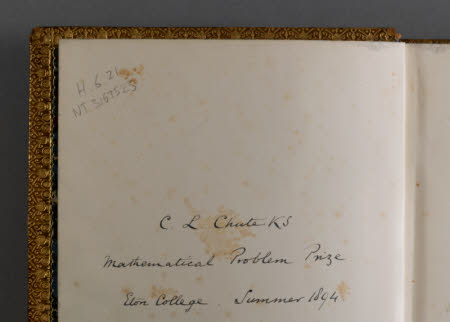 H. 6. 21
NT 3167523
C. L Chute KS
Mathematical Problem Prize
Eton College. Summer 1894.